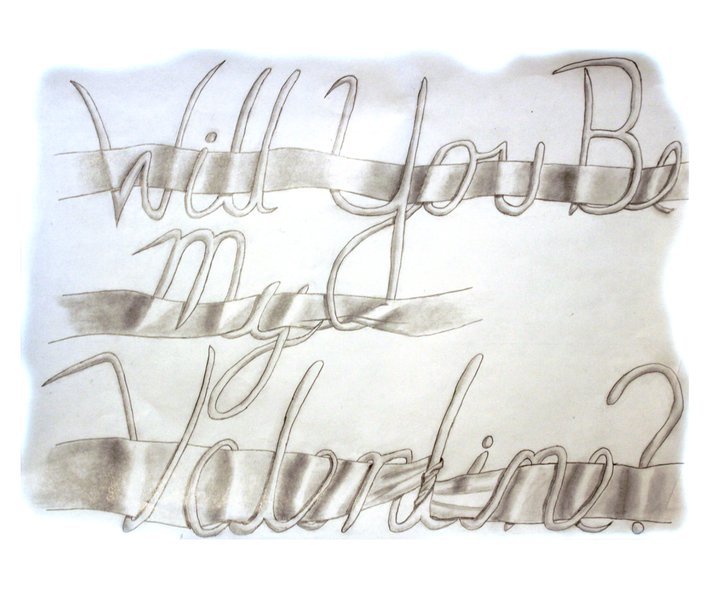 Will You Be
My
Valentine?